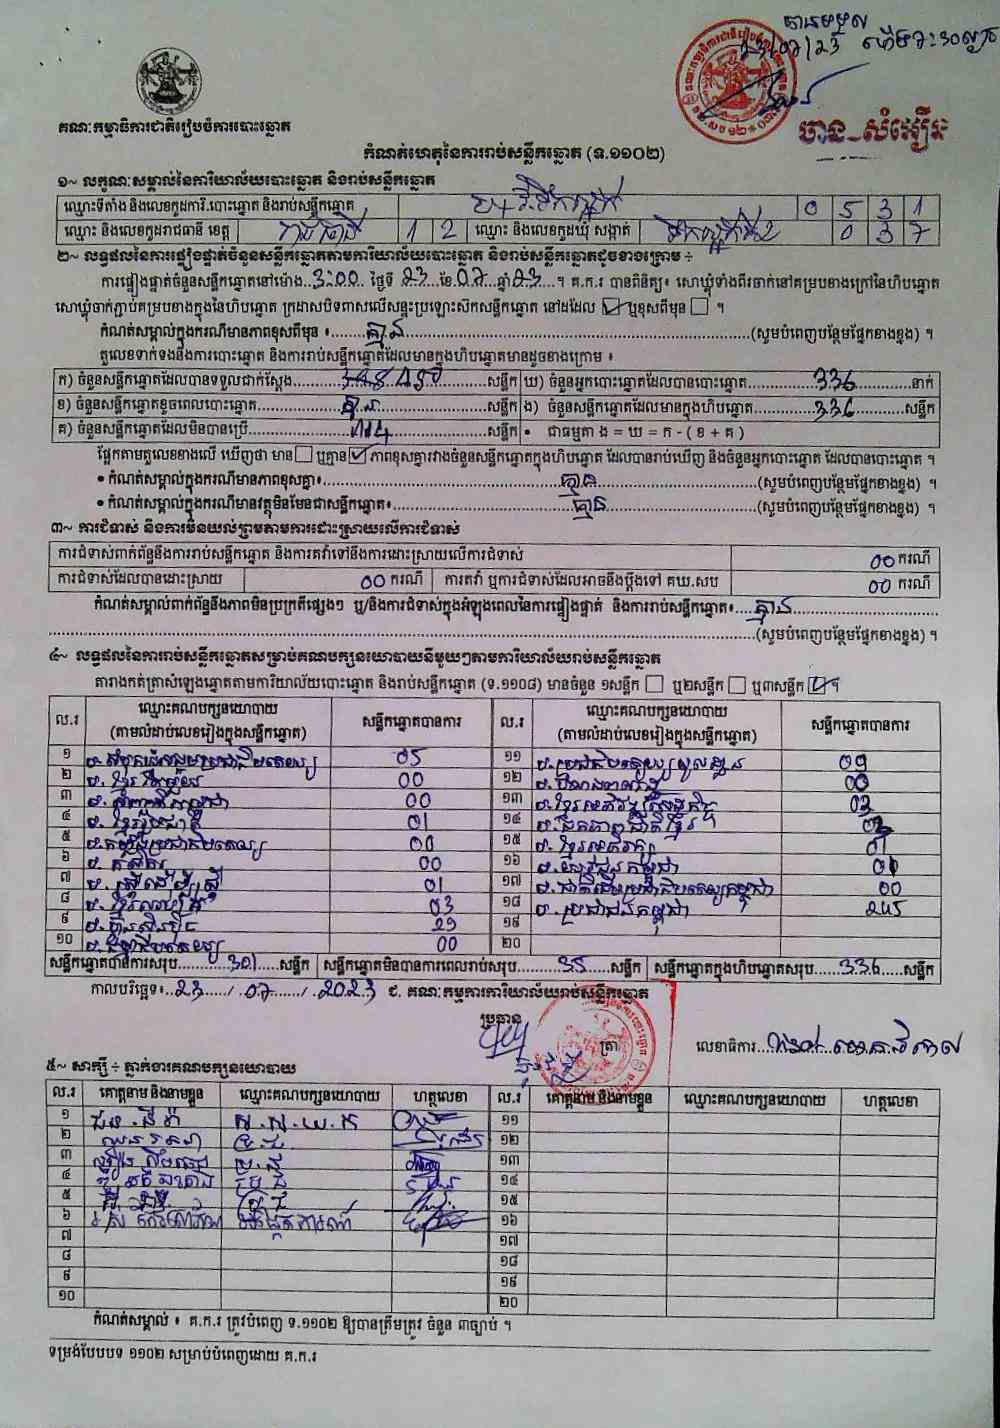 បានទទួល
23/07/23 ម៉ោង 7:30 ល្ងាច
ចាន់ សំអឿន
គណៈកម្មាធិការជាតិរៀបចំការបោះឆ្នោត
កំណត់ហេតុនៃការរាប់សន្លឹកឆ្នោត (ទ.១១០២)
១~ លក្ខណៈសម្គាល់នៃការិយាល័យបោះឆ្នោត និងរាប់សន្លឹកឆ្នោត
ឈ្មោះទីតាំង និងលេខកូដការិ.បោះឆ្នោត និងរាប់សន្លឹកឆ្នោត 0 5 3 1
ឈ្មោះ និងលេខកូដរាជធានី ខេត្ត រាជធានី 1 2 ឈ្មោះ និងលេខកូដឃុំ សង្កាត់ ទឹកល្អក់ទី២ 0 3 7
២~ លទ្ធផលនៃការផ្ទៀងផ្ទាត់ចំនួនសន្លឹកឆ្នោតតាមការិយាល័យបោះឆ្នោត និងរាប់សន្លឹកឆ្នោតដូចខាងក្រោម ÷
ការផ្ទៀងផ្ទាត់ចំនួនសន្លឹកឆ្នោតនៅម៉ោង 3:00 ថ្ងៃទី 23 ខែ 07 ឆ្នាំ 23 ។ គ.ក.រ បានពិនិត្យ៖ សោឃ្មុំទាំងពីរចាក់នៅគម្របខាងក្រៅនៃហិបឆ្នោត
សោឃ្មុំចាក់ភ្ជាប់គម្របខាងក្នុងនៃហិបឆ្នោត ក្រដាសបិទពាសលើសន្ទះប្រឡោះស៊កសន្លឹកឆ្នោត នៅដដែល ☑ ឬខុសពីមុន ☐ ។
កំណត់សម្គាល់ក្នុងករណីមានភាពខុសពីមុន ៖ គ្មាន (សូមបំពេញបន្ថែមផ្នែកខាងខ្នង) ។
តួលេខទាក់ទងនឹងការបោះឆ្នោត និងការរាប់សន្លឹកឆ្នោតដែលមានក្នុងហិបឆ្នោតមានដូចខាងក្រោម ៖
ក) ចំនួនសន្លឹកឆ្នោតដែលបានទទួលជាក់ស្តែង 450 សន្លឹក ឃ) ចំនួនអ្នកបោះឆ្នោតដែលបានបោះឆ្នោត 336 នាក់
ខ) ចំនួនសន្លឹកឆ្នោតខូចពេលបោះឆ្នោត គ្មាន សន្លឹក ង) ចំនួនសន្លឹកឆ្នោតដែលមានក្នុងហិបឆ្នោត 336 សន្លឹក
គ) ចំនួនសន្លឹកឆ្នោតដែលមិនបានប្រើ 114 សន្លឹក • ជាធម្មតា ង = ឃ = ក - ( ខ + គ )
ផ្អែកតាមតួលេខខាងលើ ឃើញថា មាន ☐ ឬគ្មាន ☑ ភាពខុសគ្នារវាងចំនួនសន្លឹកឆ្នោតក្នុងហិបឆ្នោត ដែលបានរាប់ឃើញ និងចំនួនអ្នកបោះឆ្នោត ដែលបានបោះឆ្នោត ។
• កំណត់សម្គាល់ក្នុងករណីមានភាពខុសគ្នា៖ គ្មាន (សូមបំពេញបន្ថែមផ្នែកខាងខ្នង) ។
• កំណត់សម្គាល់ក្នុងករណីមានវត្ថុមិនមែនជាសន្លឹកឆ្នោត៖ គ្មាន (សូមបំពេញបន្ថែមផ្នែកខាងខ្នង) ។
៣~ ការជំទាស់ និងការមិនយល់ព្រមតាមការដោះស្រាយលើការជំទាស់
ការជំទាស់ពាក់ព័ន្ធនឹងការរាប់សន្លឹកឆ្នោត និងការតវ៉ាទៅនឹងការដោះស្រាយលើការជំទាស់ 00 ករណី
ការជំទាស់ដែលបានដោះស្រាយ 00 ករណី ការតវ៉ា ឬការជំទាស់ដែលអាចនឹងប្តឹងទៅ គឃ.សប 00 ករណី
កំណត់សម្គាល់ពាក់ព័ន្ធនឹងភាពមិនប្រក្រតីផ្សេងៗ ឬ/និងការជំទាស់ក្នុងអំឡុងពេលនៃការផ្ទៀងផ្ទាត់ និងការរាប់សន្លឹកឆ្នោត៖ គ្មាន
(សូមបំពេញបន្ថែមផ្នែកខាងខ្នង) ។
៤~ លទ្ធផលនៃការរាប់សន្លឹកឆ្នោតសម្រាប់គណបក្សនយោបាយនីមួយៗតាមការិយាល័យរាប់សន្លឹកឆ្នោត
តារាងកត់ត្រាសំឡេងឆ្នោតតាមការិយាល័យបោះឆ្នោត និងរាប់សន្លឹកឆ្នោត (ទ.១១០៨) មានចំនួន ១សន្លឹក ☐ ឬ២សន្លឹក ☐ ឬ៣សន្លឹក ☑ ។
ល.រ ឈ្មោះគណបក្សនយោបាយ (តាមលំដាប់លេខរៀងក្នុងសន្លឹកឆ្នោត) សន្លឹកឆ្នោតបានការ ល.រ ឈ្មោះគណបក្សនយោបាយ (តាមលំដាប់លេខរៀងក្នុងសន្លឹកឆ្នោត) សន្លឹកឆ្នោតបានការ
១ ប.សំបុកឃ្មុំសង្គមប្រជាធិបតេយ្យ 05 ១១ ប.ប្រជាធិបតេយ្យមូលដ្ឋាន 09
២ ប.ខ្មែររួបរួម 00 ១២ 00
៣ 00 ១៣ ប.ខ្មែរអភិវឌ្ឍន៍សេដ្ឋកិច្ច 03
៤ ប.ខ្មែររួបរួមជាតិ 01 ១៤ ប.ឯកភាពជាតិខ្មែរ
៥ ប.កម្លាំងប្រជាធិបតេយ្យ 00 ១៥ ប.ខ្មែរអភិរក្ស 01
៦ ប.កសិករ 00 ១៦ ប.យុវជនកម្ពុជា
៧ ប.ស្ត្រីដើម្បីស្ត្រី 01 ១៧ ប.ជាតិដើមប្រជាធិបតេយ្យកម្ពុជា 00
៨ ប.ខ្មែរឈប់ក្រ 03 ១៨ ប.ប្រជាជនកម្ពុជា 245
៩ ប.ហ៊្វុនស៊ិនប៉ិច 29 ១៩
១០ ប.ធម្មាធិបតេយ្យ 00 ២០
សន្លឹកឆ្នោតបានការសរុប 301 សន្លឹក សន្លឹកឆ្នោតមិនបានការពេលរាប់សរុប 35 សន្លឹក សន្លឹកឆ្នោតក្នុងហិបឆ្នោតសរុប 336 សន្លឹក
កាលបរិច្ឆេទ៖ 23 / 07 / 2023 ជ. គណៈកម្មការការិយាល័យរាប់សន្លឹកឆ្នោត
ប្រធាន
ត្រា
លេខាធិការ
៥~ សាក្សី ÷ ភ្នាក់ងារគណបក្សនយោបាយ
ល.រ គោត្តនាម និងនាមខ្លួន ឈ្មោះគណបក្សនយោបាយ ហត្ថលេខា ល.រ គោត្តនាម និងនាមខ្លួន ឈ្មោះគណបក្សនយោបាយ ហត្ថលេខា
១ ស.ស.យ.ក ១១
២ ប្រ.ជ ១២
៣ ប្រ.ជ ១៣
៤ ១៤
៥ ប្រ.ជ ១៥
៦ អង្កេតការណ៍ ១៦
៧ ១៧
៨ ១៨
៩ ១៩
១០ ២០
កំណត់សម្គាល់ ៖ គ.ក.រ ត្រូវបំពេញ ទ.១១០២ ឱ្យបានត្រឹមត្រូវ ចំនួន ៣ច្បាប់ ។
ទម្រង់បែបបទ ១១០២ សម្រាប់បំពេញដោយ គ.ក.រ